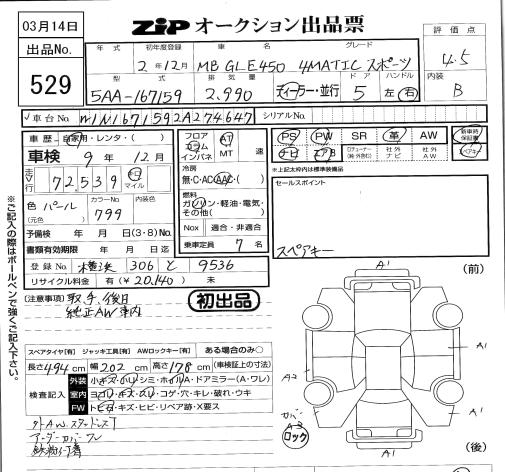 03月14日
ZIP オークション出品票
評価点
4.5
内装
B
出品No.
529
年式 初年度登録 車名 グレード
2年12月 MB GLE450 4MATIC スポーツ
型式 排気量 ドア ハンドル
5AA-167159 2.990 ディーラー・並行 5 左 右
車台No. W1N1671592A274647 シリアルNo.
車歴・自家用・レンタ・( )
車検 9年 12月
走行 72,539 キロ マイル
色 パール カラーNo 799 内装色
(元色)
予備検 年 月 日(3・8)No.
書類有効期限 年 月 日迄
登録No. 横浜 306 と 9536
リサイクル料金 有(¥20,140) 未
フロア コラム インパネ AT MT 速
冷房
無・C・AC・AAC・( )
燃料
ガソリン・軽油・電気・
その他( )
Nox 適合・非適合
乗車定員 7名
PS PW SR 革 AW 新車時保証書
ナビ エアB 社外ナビ 社外AW
※上記太枠内は標準装備品
セールスポイント
スペアキー
(注意事項)取、手、後日
純正AW車内
初出品
スペアタイヤ[有] ジャッキ工具[有] AWロックキー[有] ある場合のみ○
長さ494cm 幅202cm 高さ178cm (車検証上の寸法)
検査記入
外装 小キズ・小ハリ・シミ・ホイルA・ドアミラー(A・ワレ)
室内 ヨゴレ・キズ・スリ・コゲ・穴・キレ・破れ・ウキ
FW トビ石・キズ・ヒビ・リペア跡・X要ス
※ご記入の際はボールペンで強くご記入下さい。
A1
(前)
A1
A2
A1
A3
ロック
A1
(後)